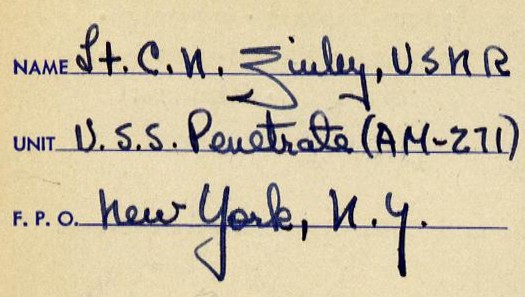 NAME Lt. C. N. Zinley, USNR
UNIT U.S.S. Penetrate (AM-271)
F. P. O. New York, N.Y.